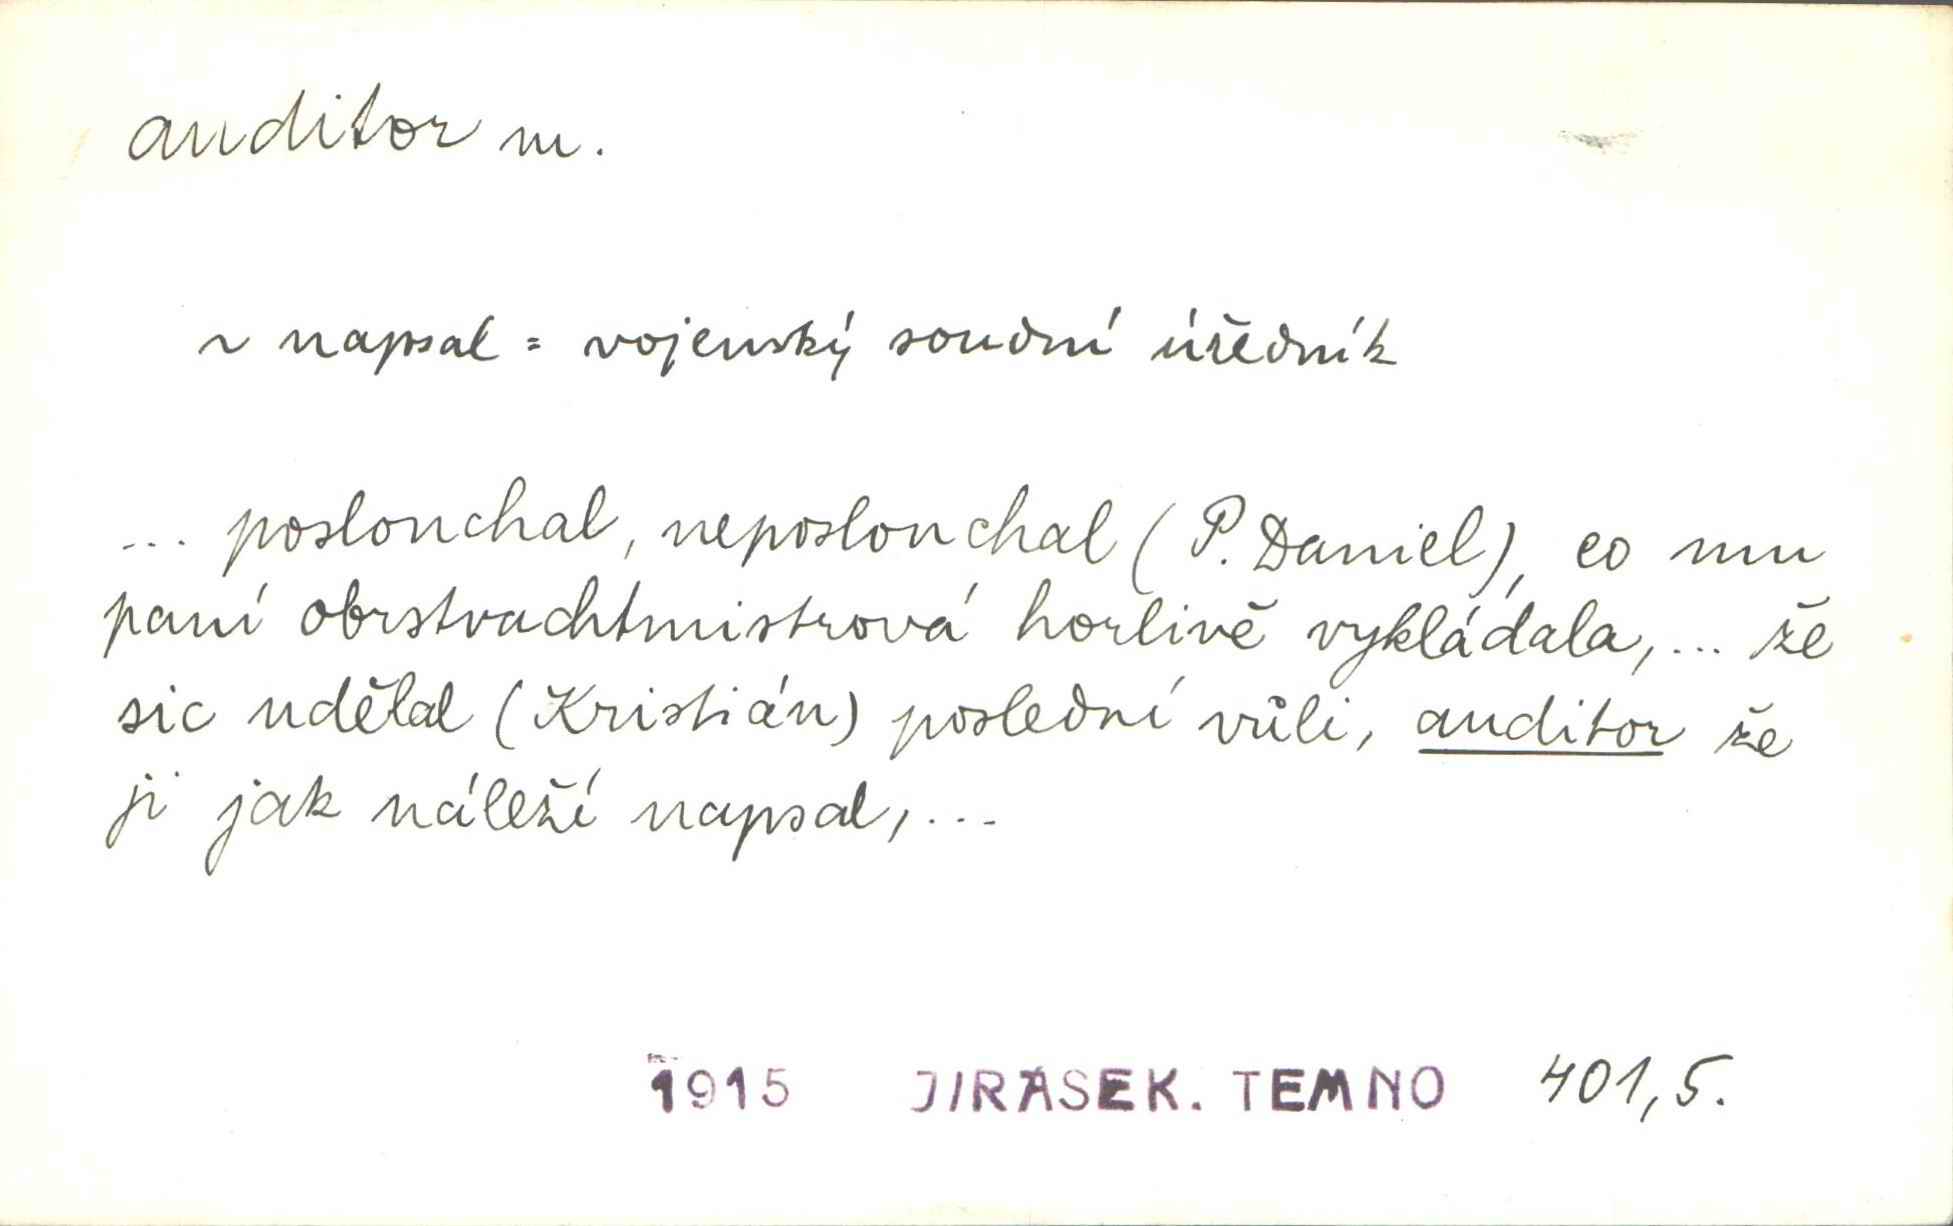 auditor m.
~ napsal = vojenský soudní úředník
... poslouchal, neposlouchal (P. Daniel), co mu
paní obrstvachtmistrová horlivě vykládala,... že
sic udělal (Kristián) poslední vůli, auditor že
ji jak náleží napsal,...
1915 JIRÁSEK. TEMNO 401,5.